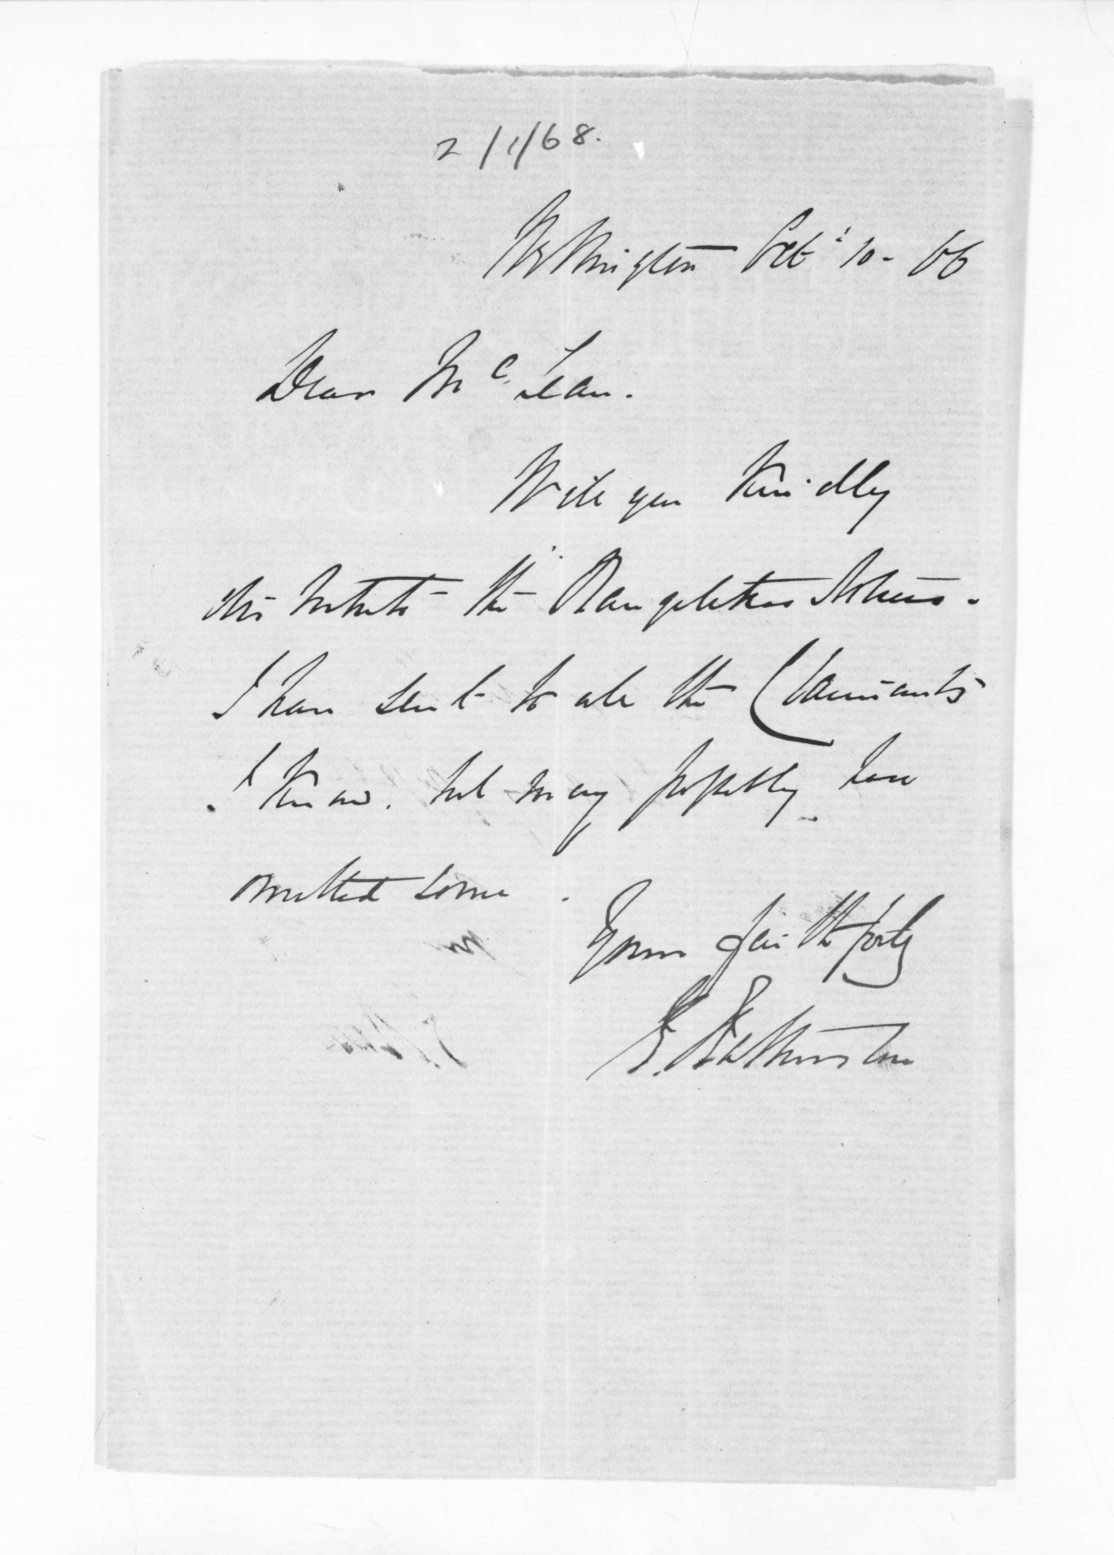 2/1/68.
Wellington Octr 10 - 66
Dear McLean.
Will you kindly
distribute the Rangitikei Notices.
I have sent to all the Claimants
I know. but may possibly have
omitted some.
Yours faithfully